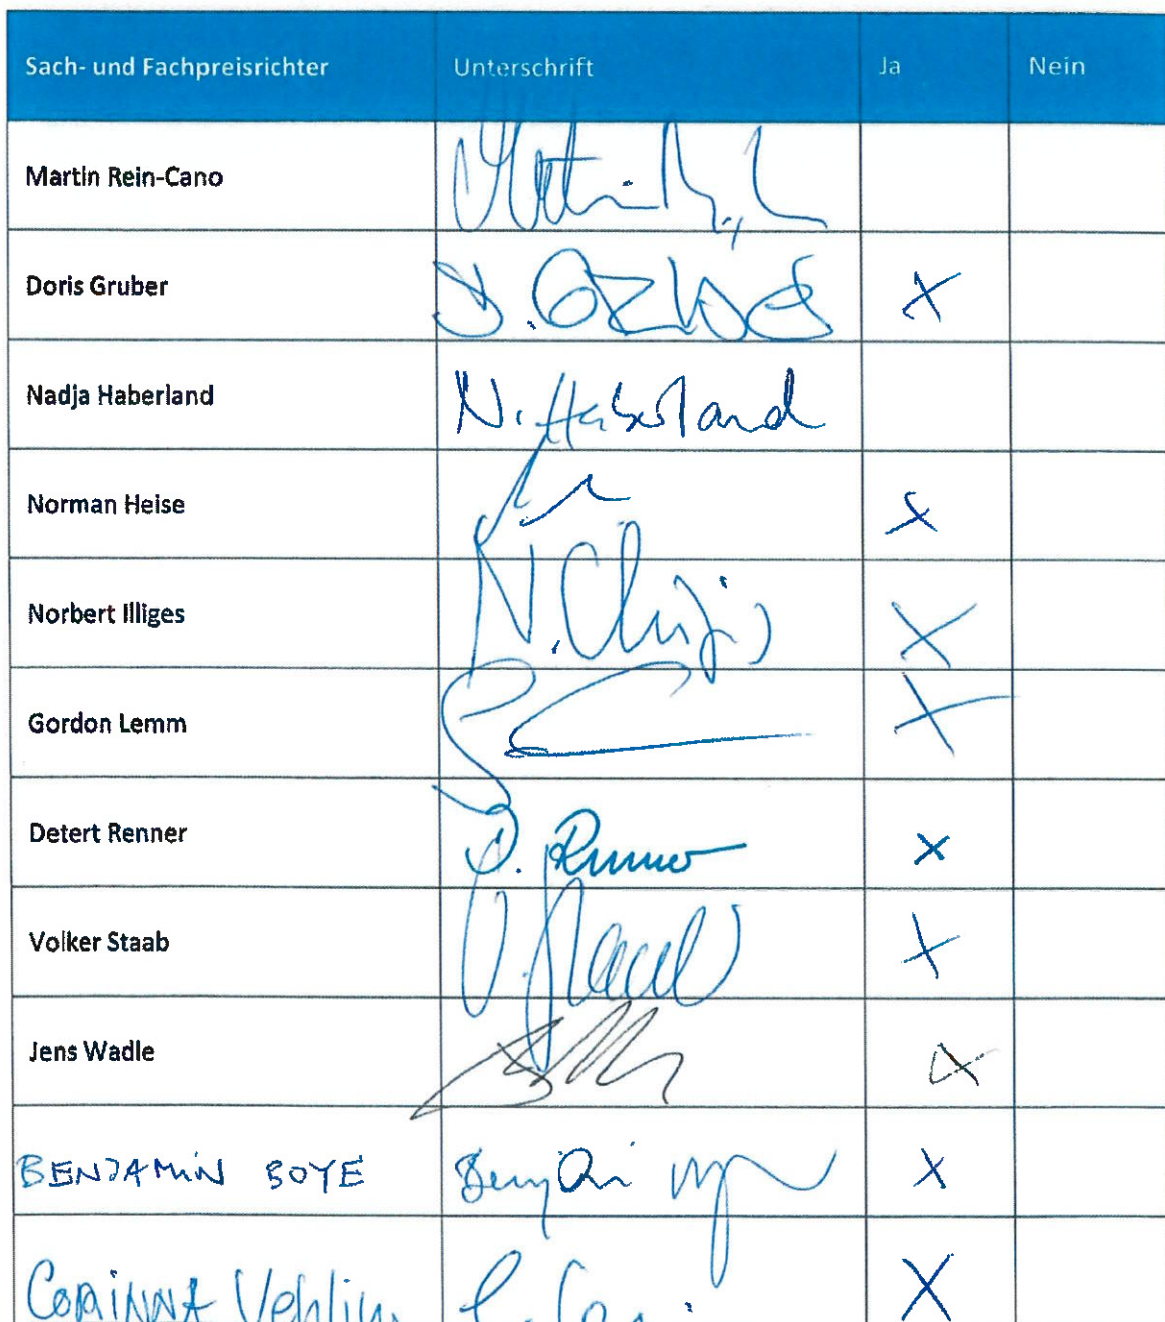 Sach- und Fachpreisrichter Unterschrift Ja Nein
Martin Rein-Cano
Doris Gruber X
Nadja Haberland N. Haberland
Norman Heise X
Norbert Illiges X
Gordon Lemm X
Detert Renner D. Renner X
Volker Staab V. Staab X
Jens Wadle X
BENJAMIN BOYE X
CORINNA X